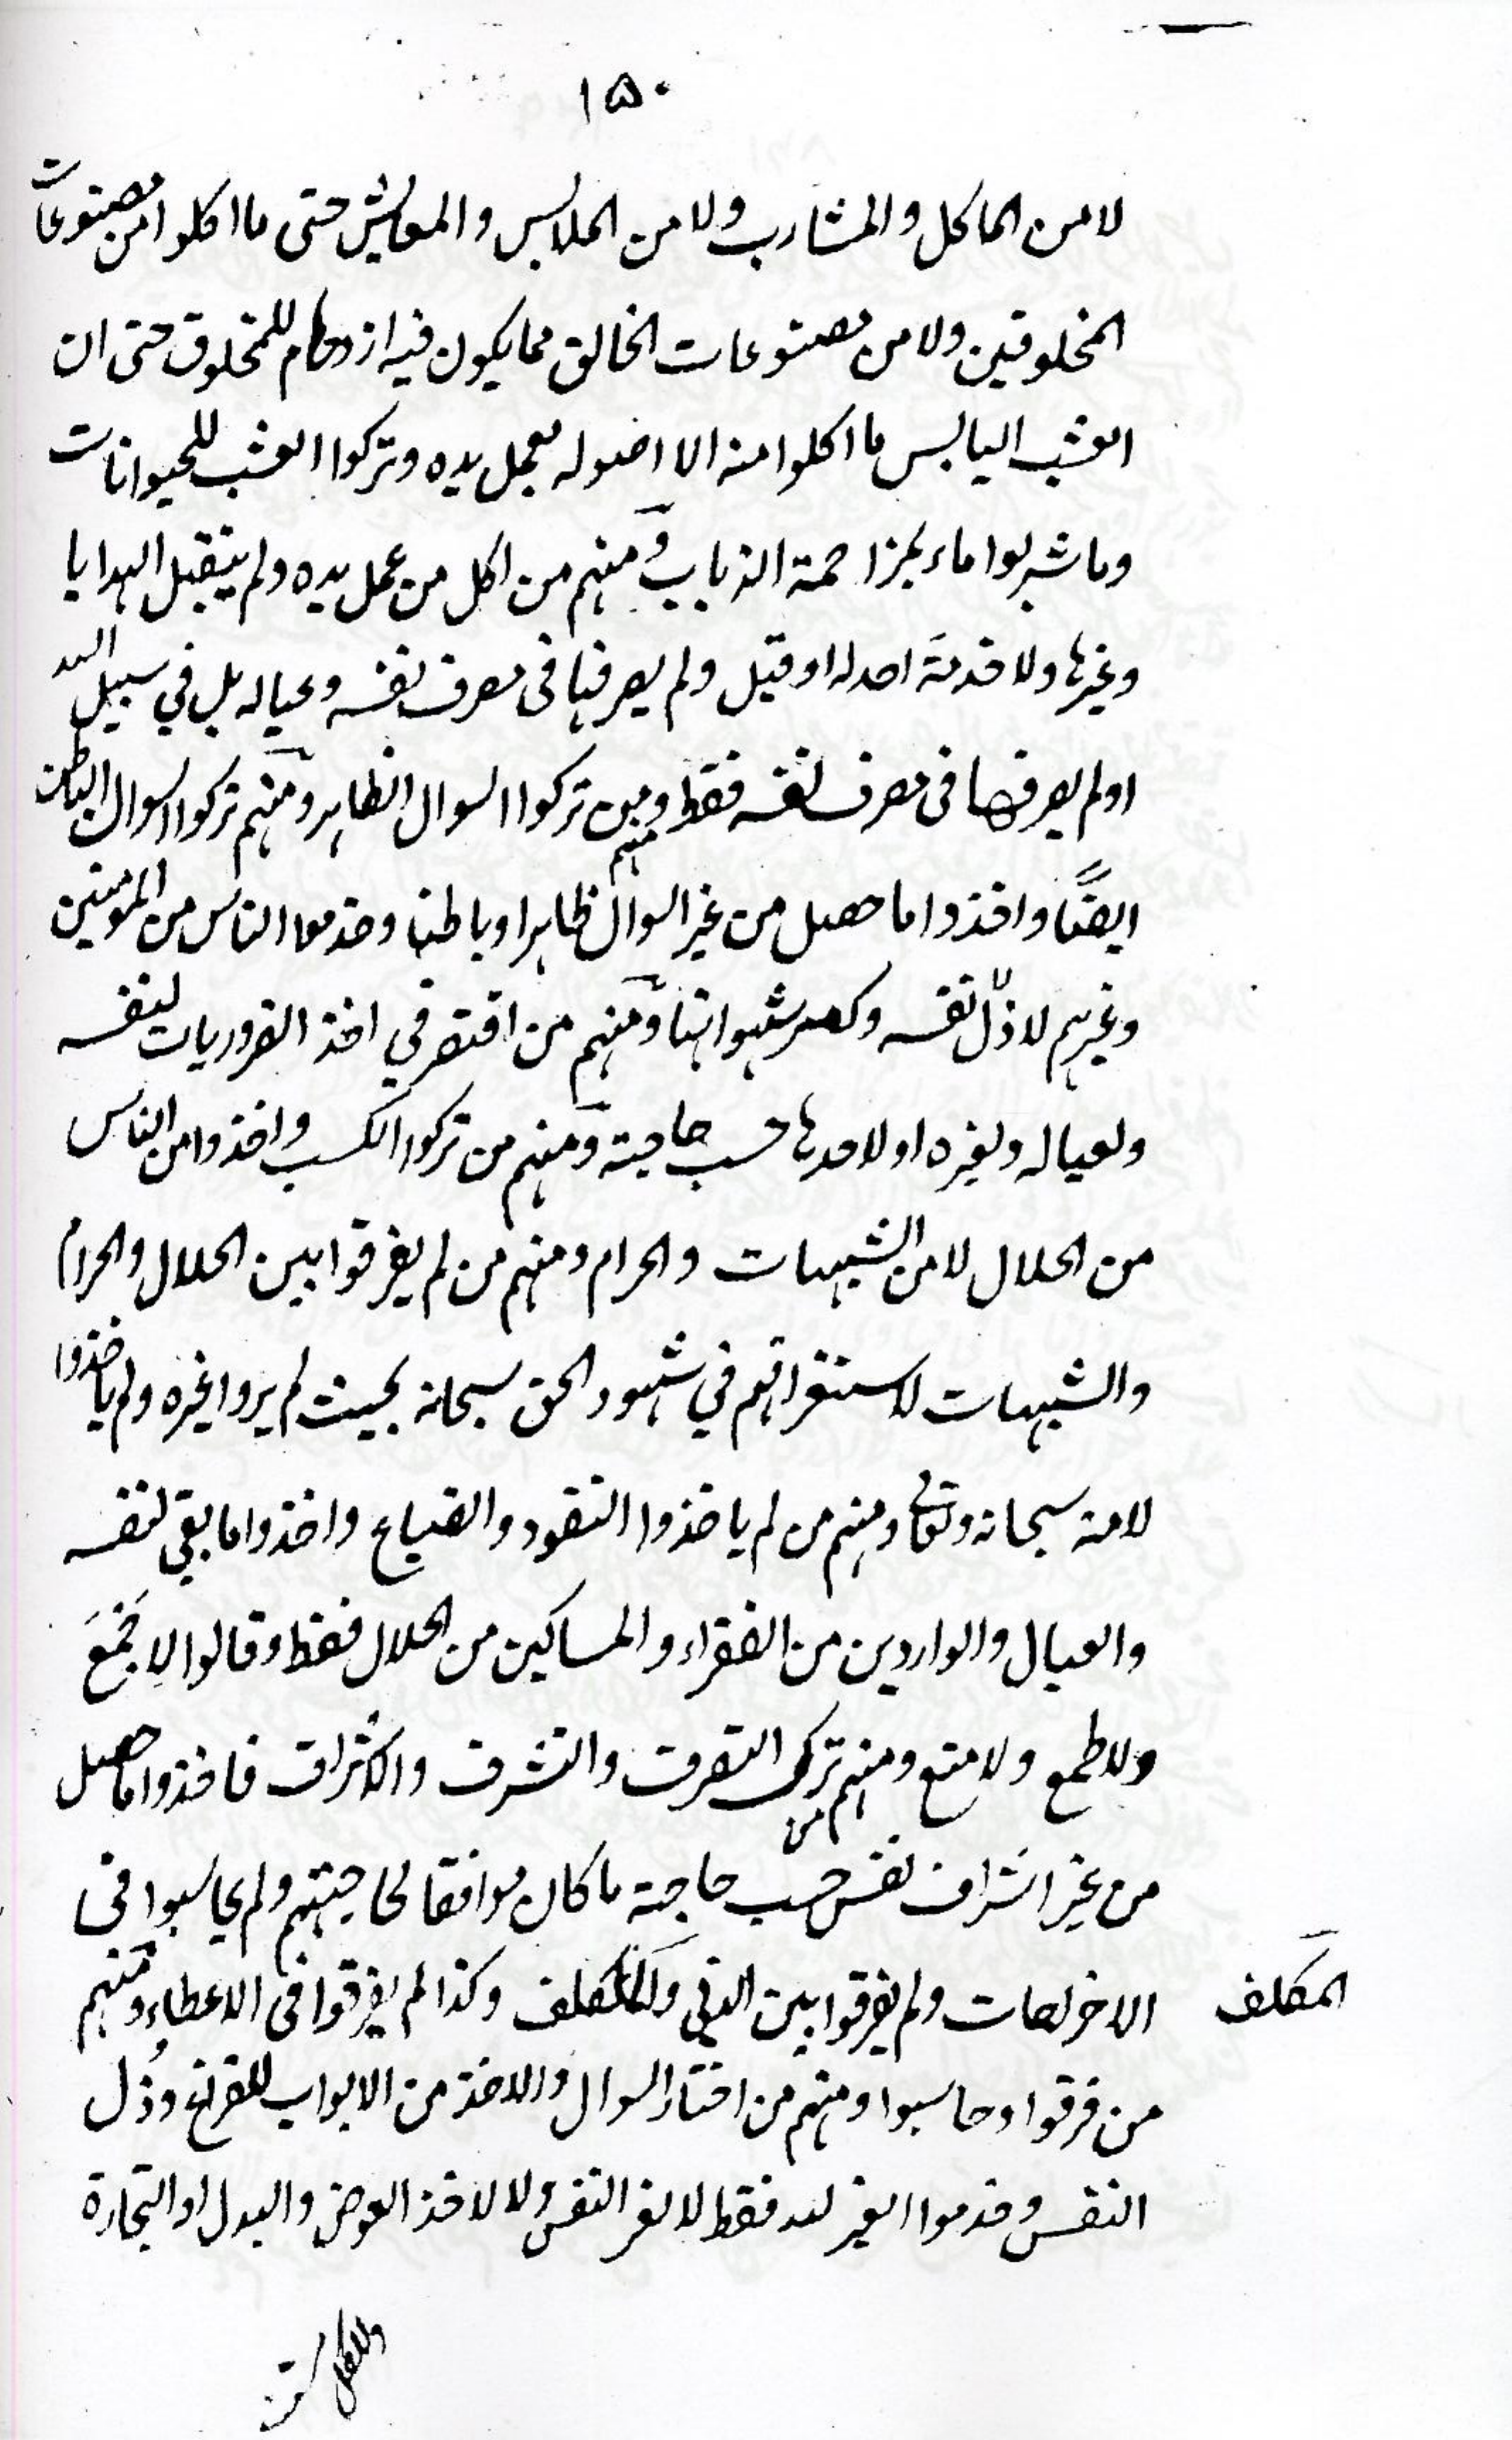 ١٥٠
لا من الماكل والمشارب ولا من الملابس والمعايش حتى ما اكلوا من مصنوعات
المخلوقين ولا من مصنوعات الخالق مما يكون فيه ازدحام للمخلوق حتى ان
العشب اليابس ما اكلوا منه الا اصوله بعمل يده وتركوا العشب للحيوانات
وما شربوا ماء بمزاحمة الذباب ومنهم من اكل من عمل يده ولم يتقبل الهدايا
وغيرها ولا خدمة احد له او قبل ولم يصرفها فى مصرف نفسه وعياله بل في سبيل الله
او لم يصرفها فى مصرف نفسه فقط ومنهم من تركوا السوال الظاهر ومنهم تركوا السوال الباطن
ايضًا واخذوا ما حصل من غير السوال ظاهرا وباطنا وخدموا الناس من المؤمنين
وغيرهم لا ذلّ نفسه وكسر شهواتها ومنهم من اقتصر في اخذ الضروريات لنفسه
ولعياله ولغيره او لاحدها حسب حاجته ومنهم من تركوا الكسب واخذوا من الناس
من الحلال لا من الشبهات والحرام ومنهم من لم يفرقوا بين الحلال والحرام
والشبهات لاستغراقهم في شهود الحق سبحانه بحيث لم يروا غيره ولم ياخذوا
لا منه سبحانه وتعالى ومنهم من لم ياخذوا النقود والضياع واخذوا ما بقي لنفسه
والعيال والواردين من الفقراء والمساكين من الحلال فقط وقالوا لا نَجمَعَ
ولا طمع ولا منع ومنهم من ترك التصرف والتشرف والاشراف فاخذوا ما حصل
من غير اشراف نفس حسب حاجته ما كان موافقا لحاجتهم ولم يحاسبوا فى
الاخراجات ولم يفرقوا بين الدني والمكلف وكذا لم يفرقوا فى الاعطاء ومنهم
المكلف
من فرقوا وحاسبوا ومنهم من اختار السوال والاخذ من الابواب للفراغ وذُل
النفس وخدموا الغير لله فقط لا لغر النفس ولا لاخذ العوض والبدل او التجارة